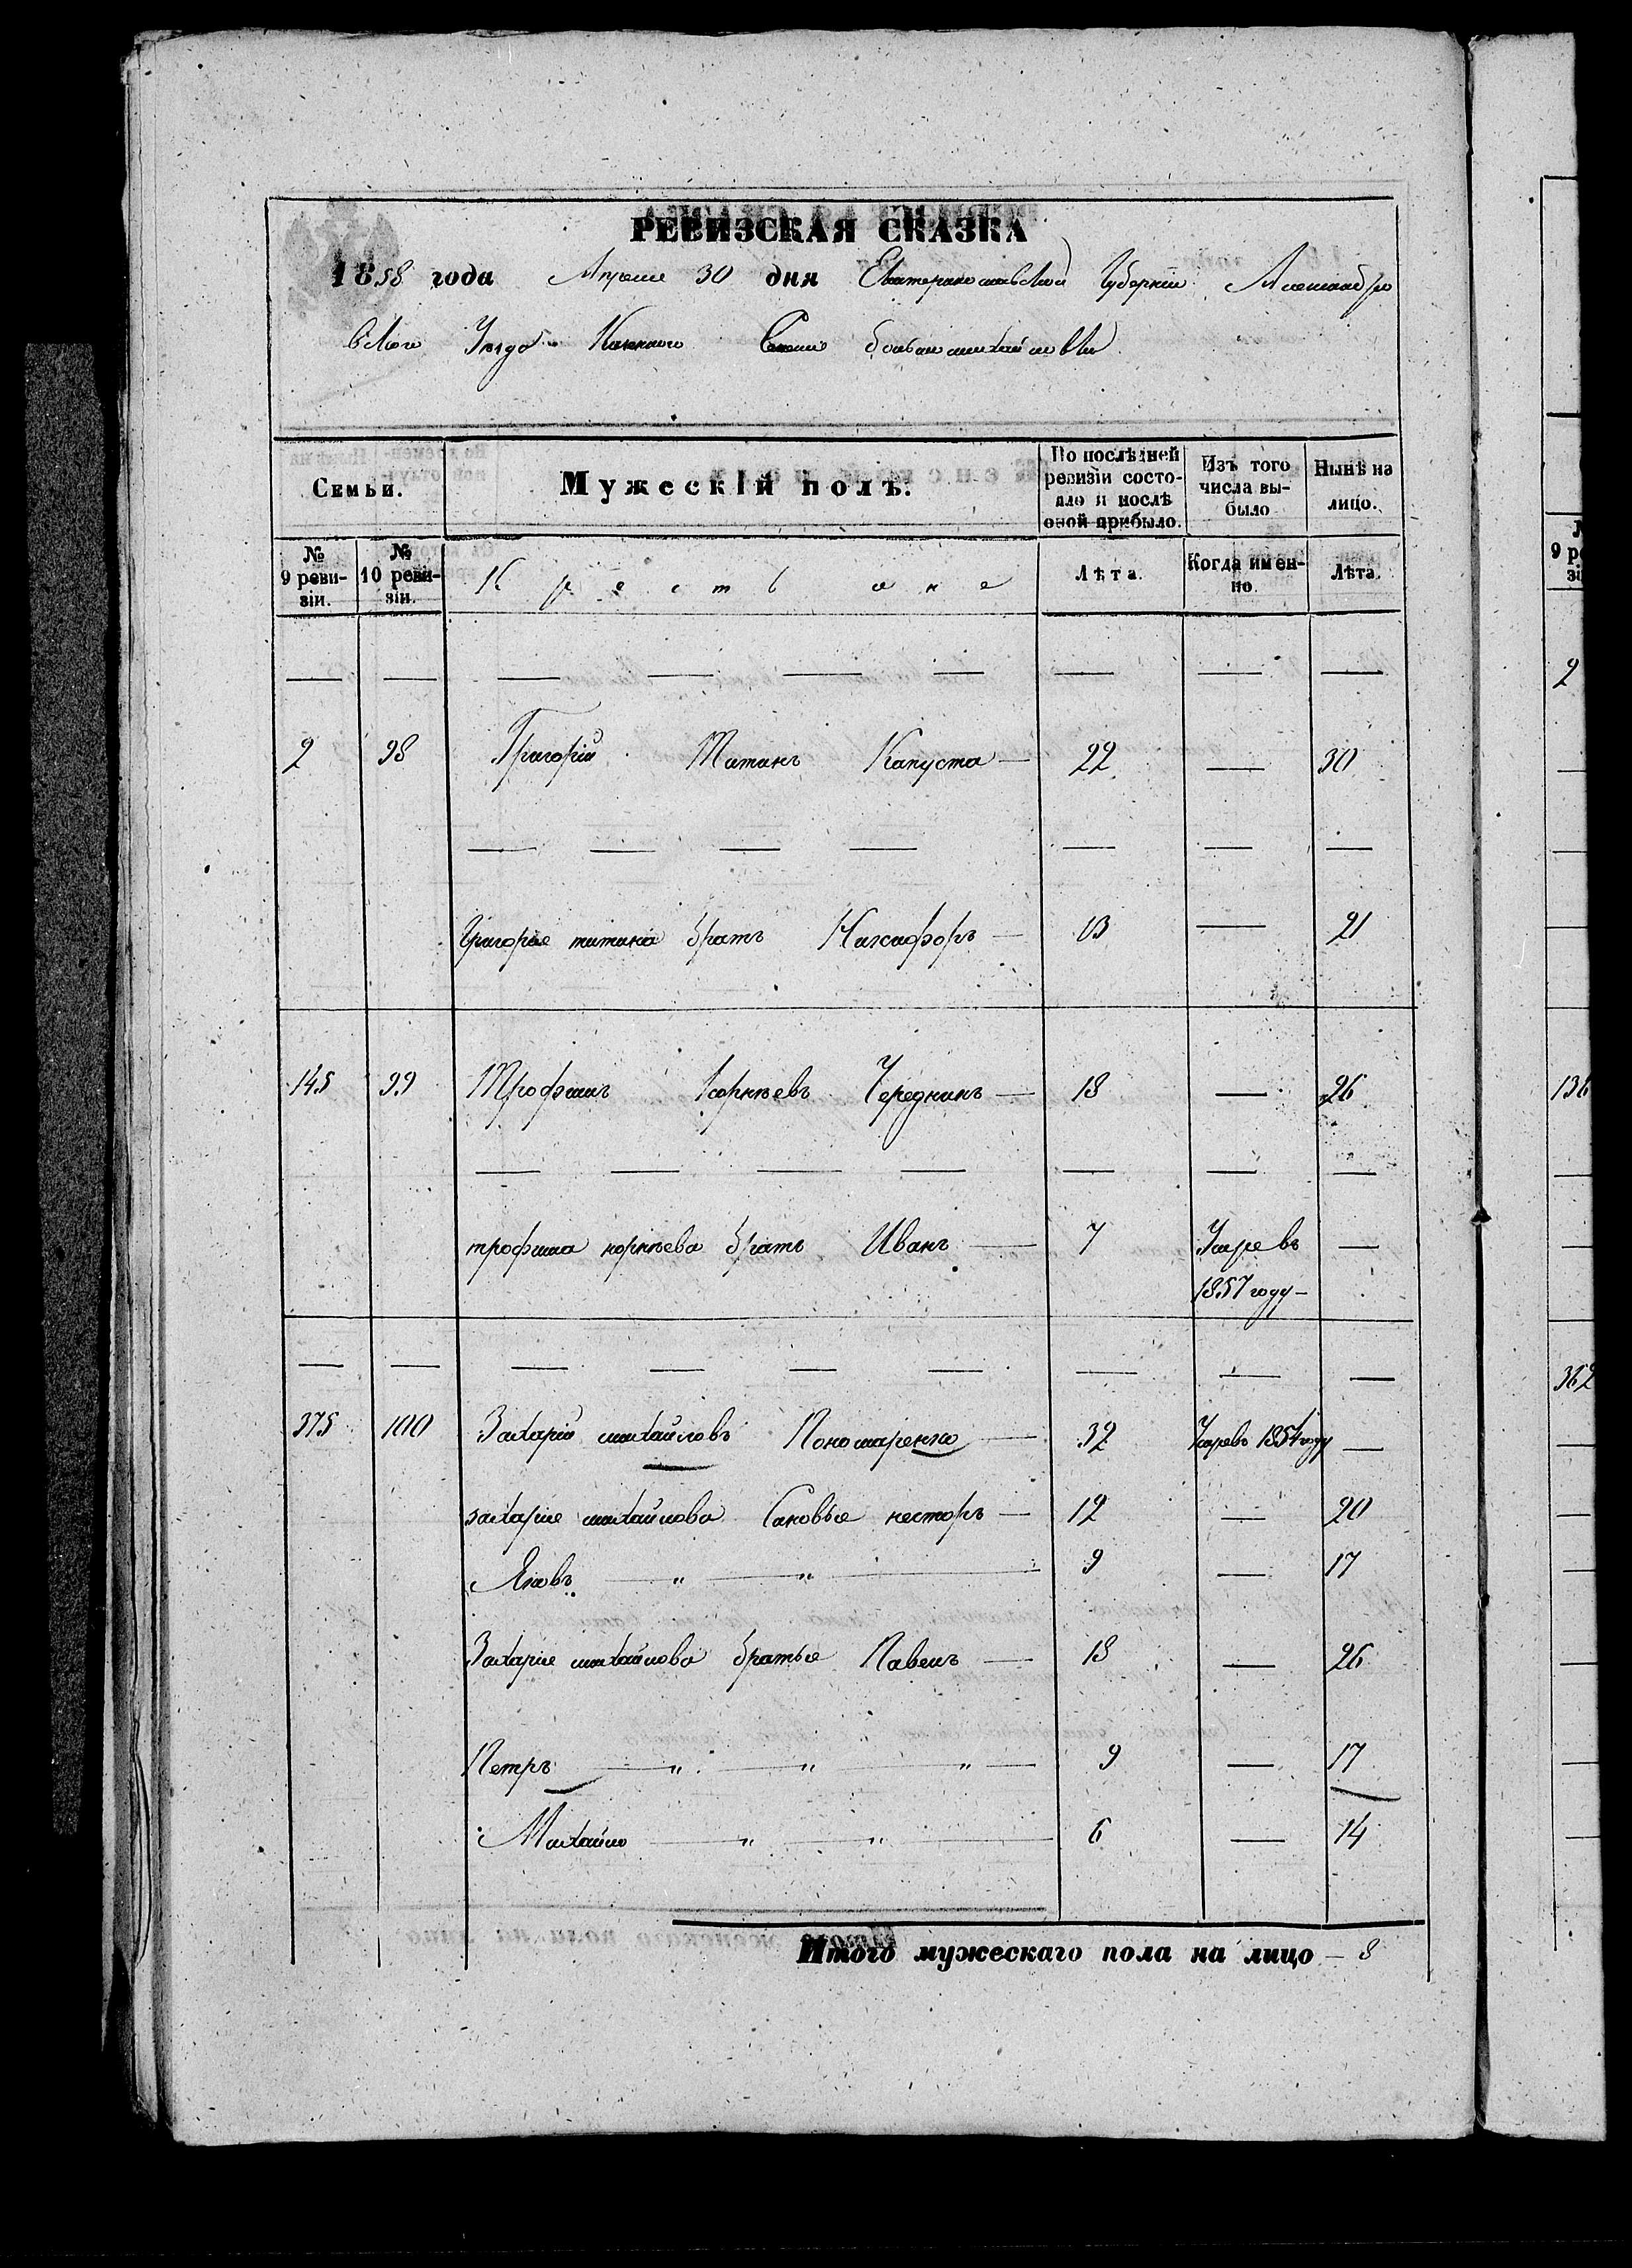 РЕВИЗСКАЯ СКАЗКА
1858 года Апреля 30 дня Екатеринославской Губернии Александро
вского Уезда Казенного Селенія большемихайловки
Семьи.
Мужескій полъ.
По послѣдней ревизіи состояло и послѣ оной прибыло.
Изъ того числа выбыло
Нынѣ на лицо.
№ 9 ревизіи.
№ 10 ревизіи.
Крестьяне
Лѣта.
Когда именно.
Лѣта.
2 98 Григорій Титинъ Капуста — 22 — 30
Григорія титина братъ Никифоръ — 13 — 21
145 99 Трофимъ Корнѣевъ Чередникъ — 18 — 26
трофима корнѣева братъ Иванъ — 7 Умре въ —
1857 году —
375 100 Захарій михайловъ Пономаренко — 32 Умре въ 1854 году —
захарія михайлова Сановья несторъ — 12 — 20
Яковъ — " — " — 9 — 17
Захарія михайлова братья Павелъ — 18 — 26
Петръ — " — " — " — 9 — 17
Михайло — " — " — 6 — 14
Итого мужескаго пола на лицо — 8
№
9 ре
зі
2
136
362